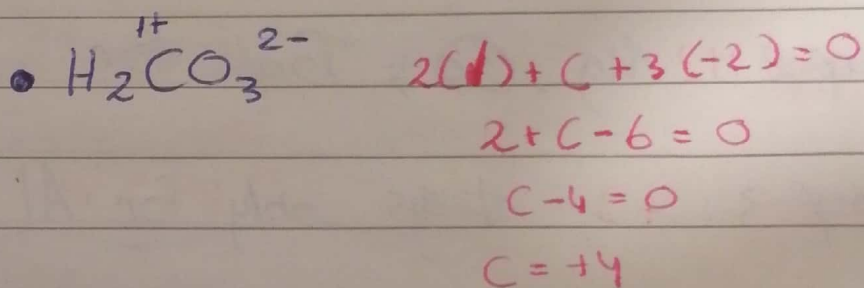 • H₂¹⁺CO₃²⁻ 2(1) + C + 3(-2) = 0
2 + C - 6 = 0
C - 4 = 0
C = +4